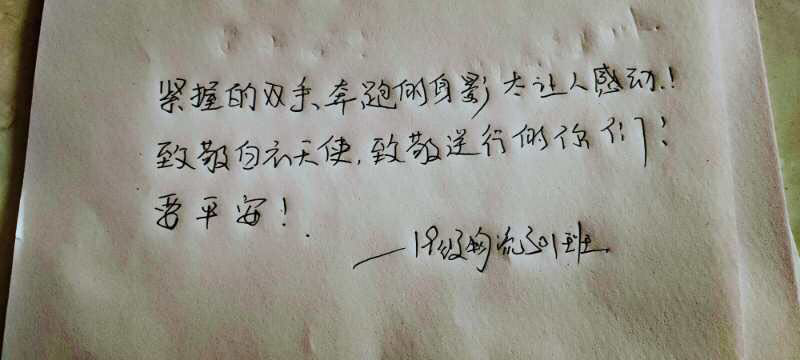 紧握的双手、奔跑的身影太让人感动!
致敬白衣天使,致敬逆行的你们!
要平安!
——19级物流301班